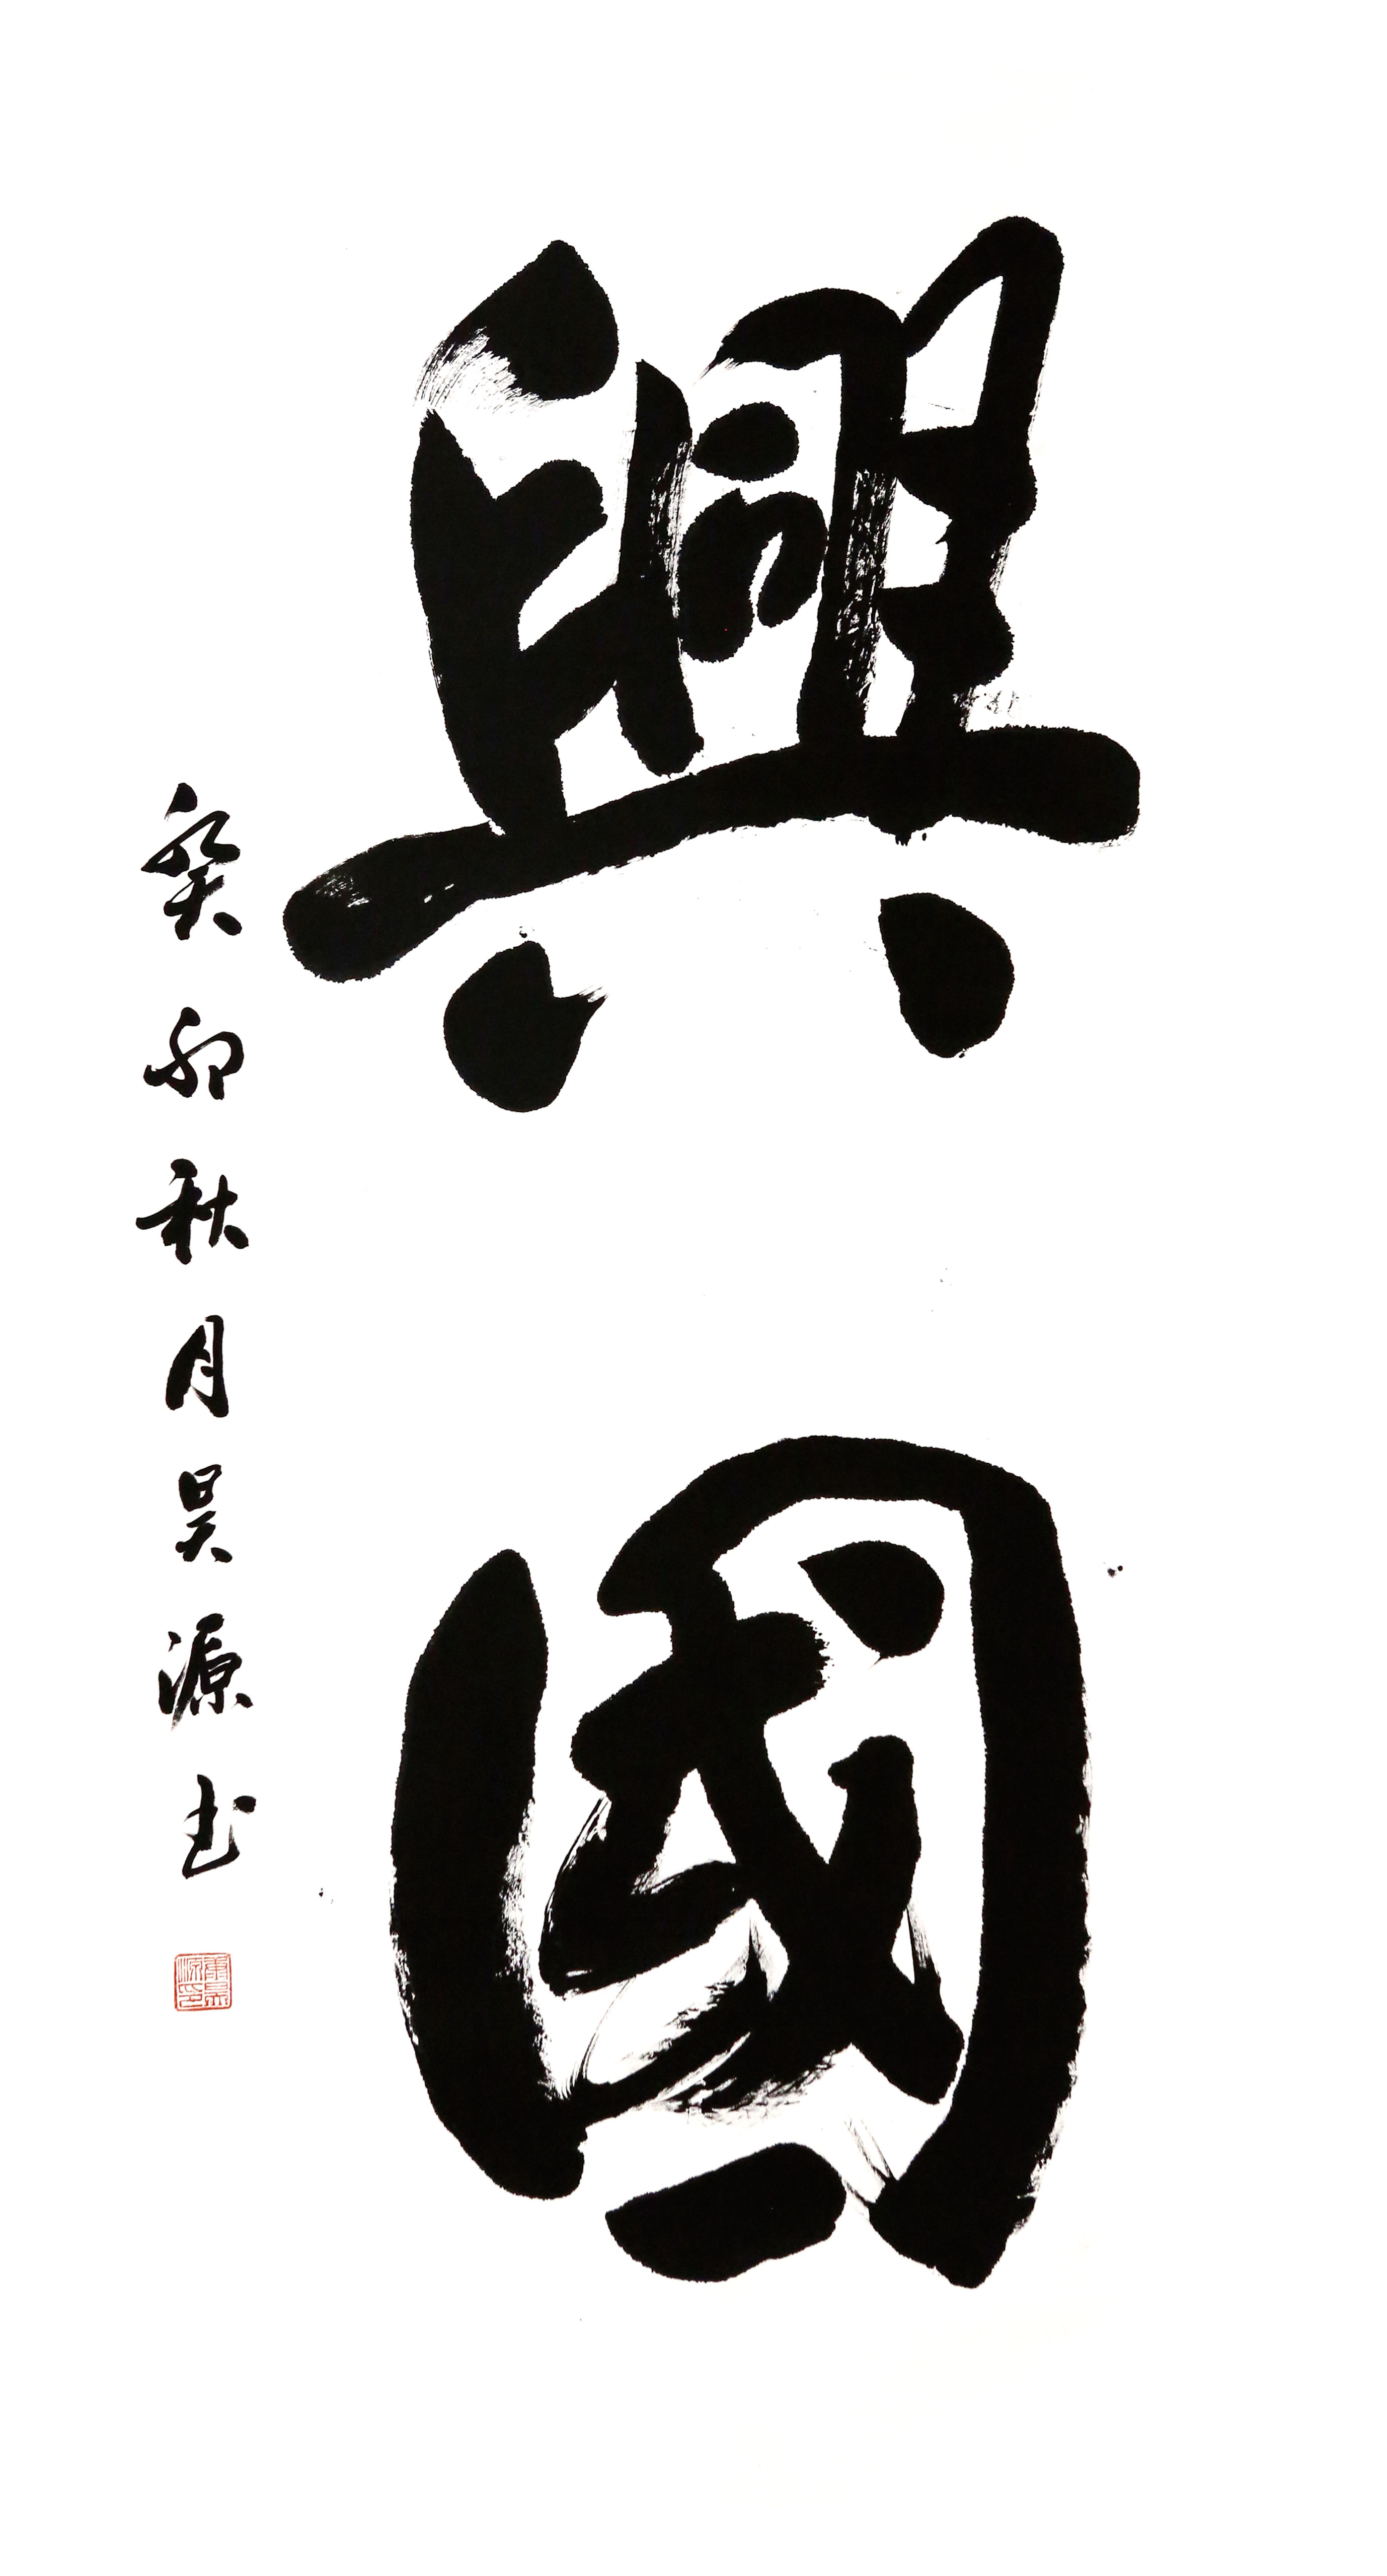 興國
癸卯秋月昊源书